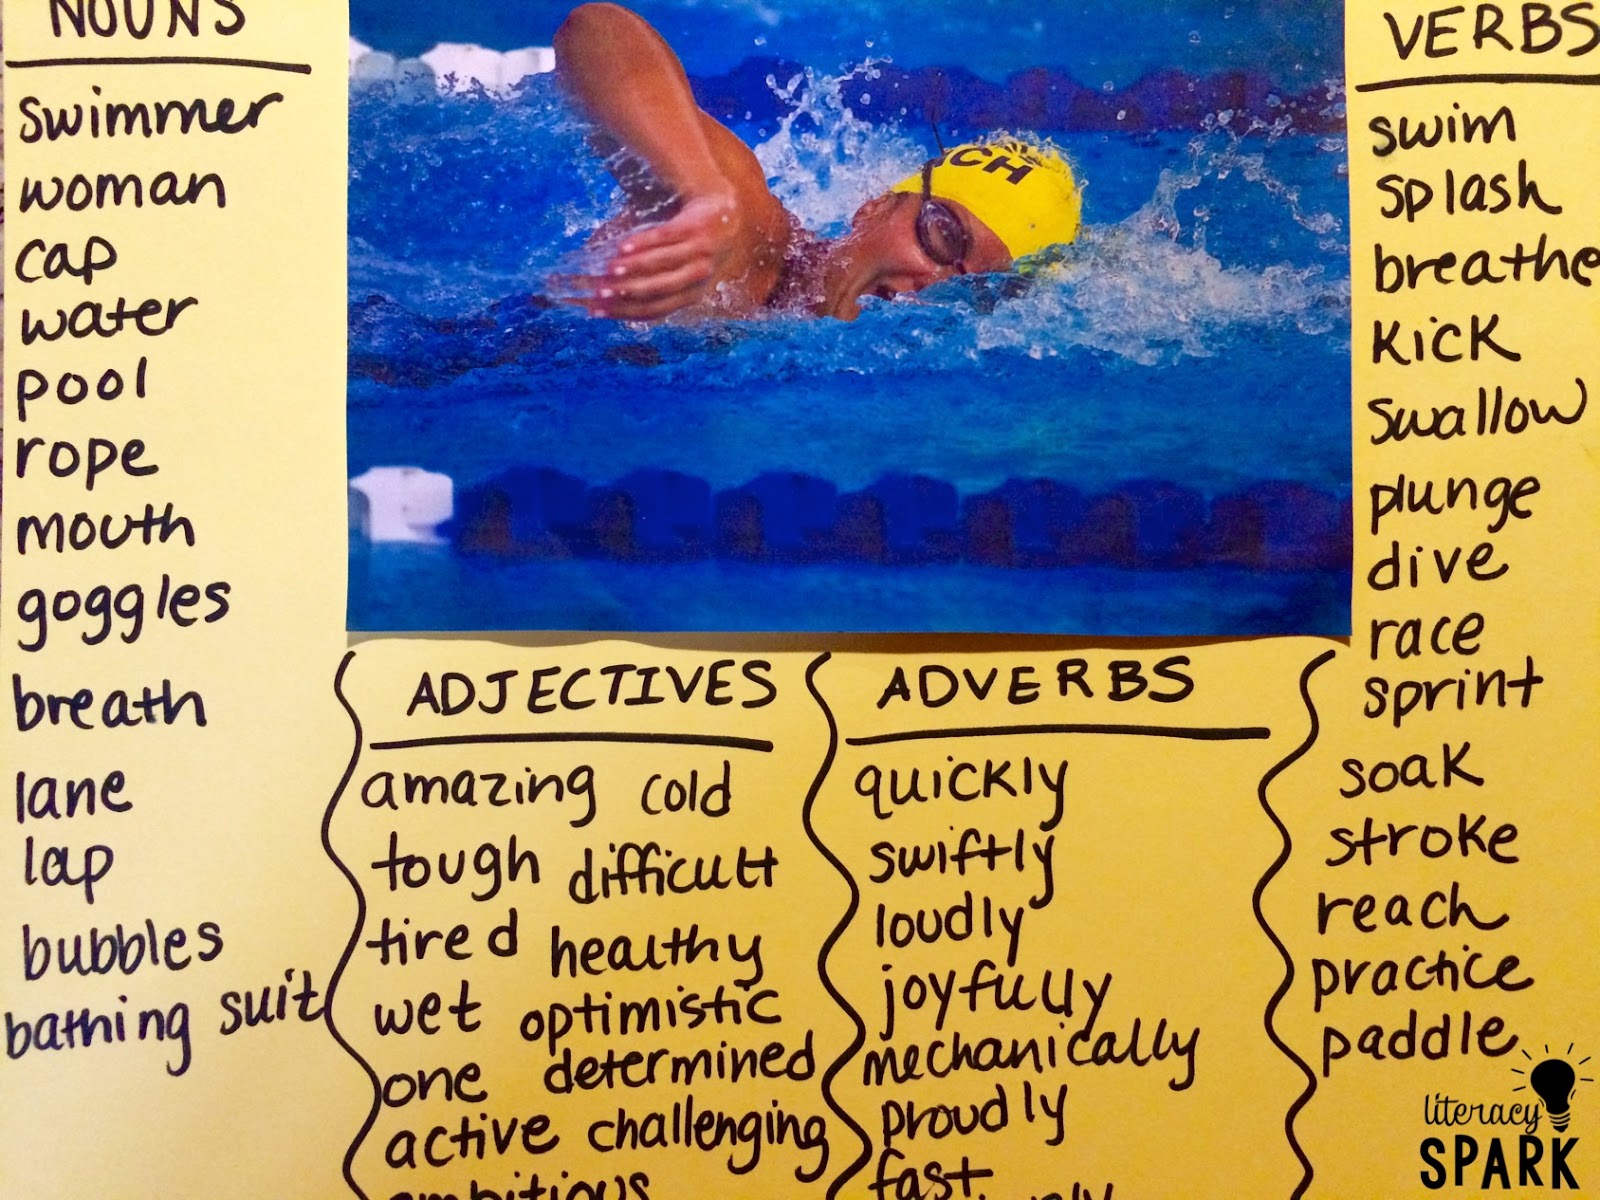 NOUNS
swimmer
woman
cap
water
pool
rope
mouth
goggles
breath
lane
lap
bubbles
bathing suit
CH
ADJECTIVES
amazing cold
tough difficult
tired healthy
wet optimistic
one determined
active challenging
ambitious
ADVERBS
quickly
swiftly
loudly
joyfully
mechanically
proudly
fast
VERBS
swim
splash
breathe
kick
swallow
plunge
dive
race
sprint
soak
stroke
reach
practice
paddle
literacy
SPARK